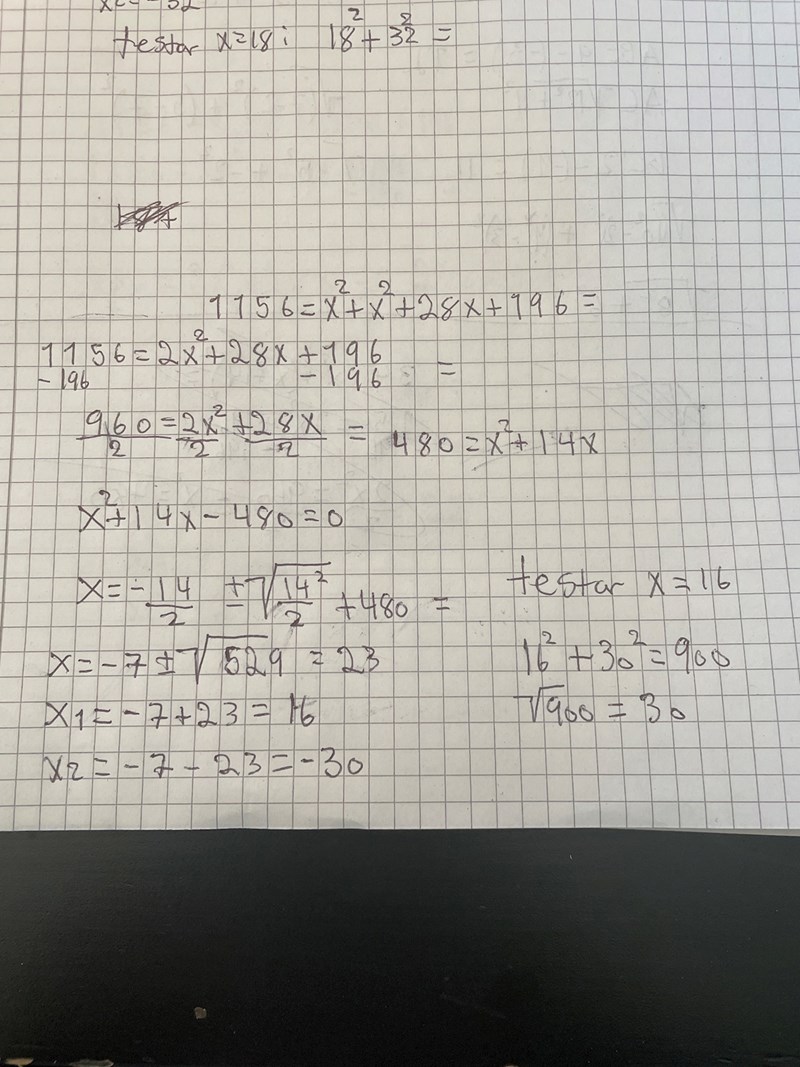 x2=-32
testar x=18: 18²+32²=
1156=x²+x²+28x+196=
1156=2x²+28x+196
-196 -196 =
960/2=2x²/2+28x/2 = 480=x²+14x
x²+14x-480=0
x=-14/2 ±√14²/2 +480 =
x=-7±√529=23
x1=-7+23=16
x2=-7-23=-30
testar x=16
16²+30²=900
√900=30